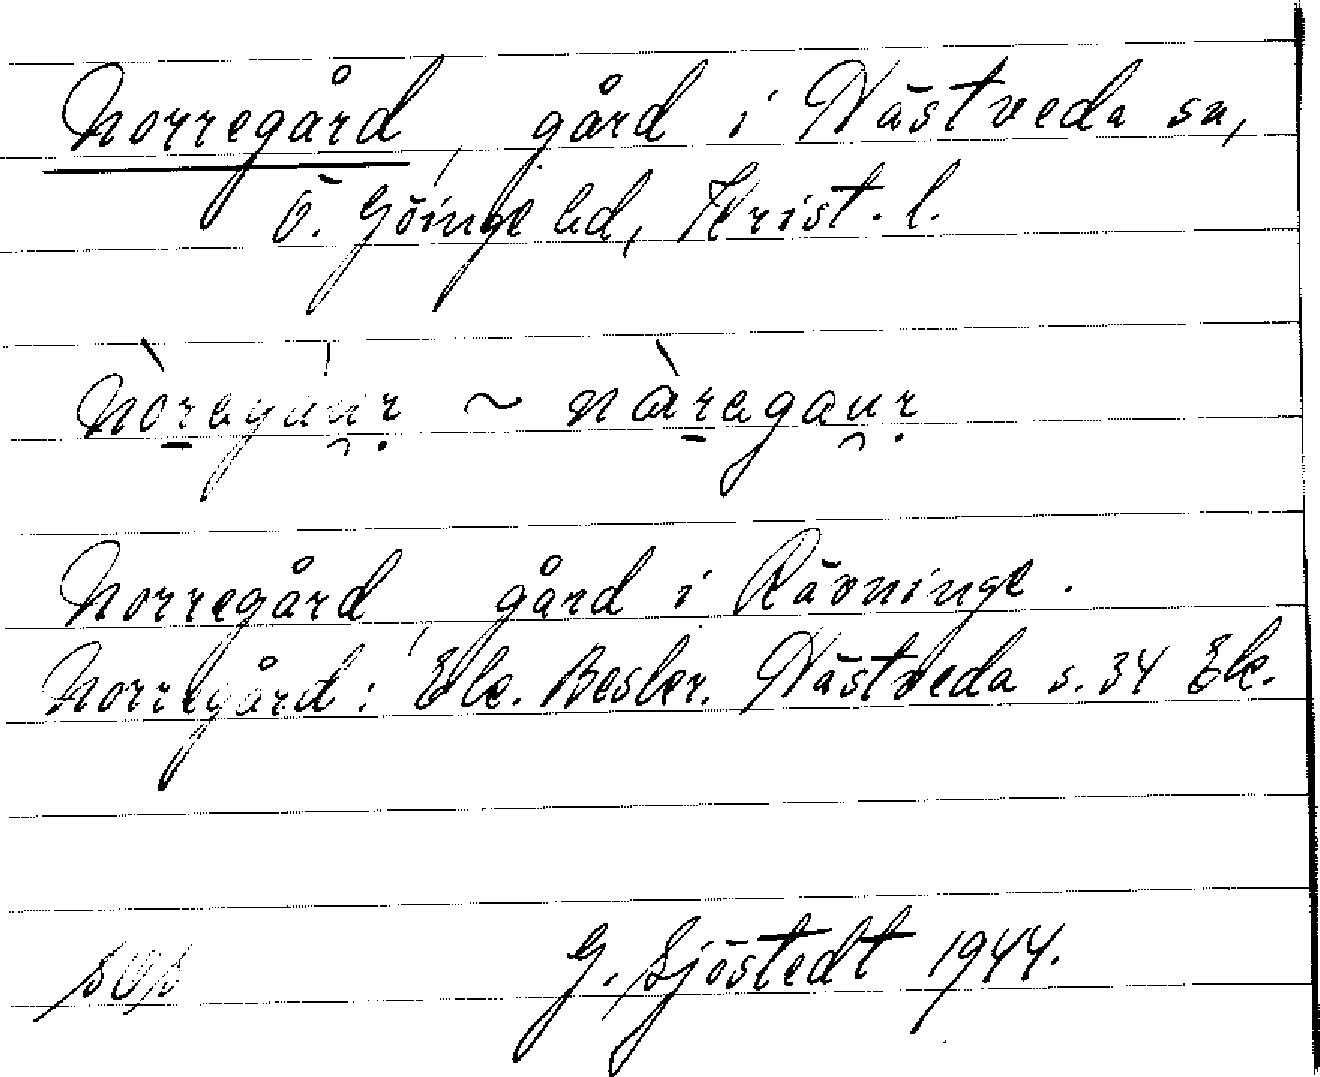 Norregård, gård i Västveda sn,
Ö. Göinge hd, Krist. l.
nòregàu̯ṛ ~ nàregau̯ṛ
Norregård, gård i Rävninge.
Norregård: Ek. Beskr. Västveda s. 34 Ek.
G. Sjöstedt 1944.